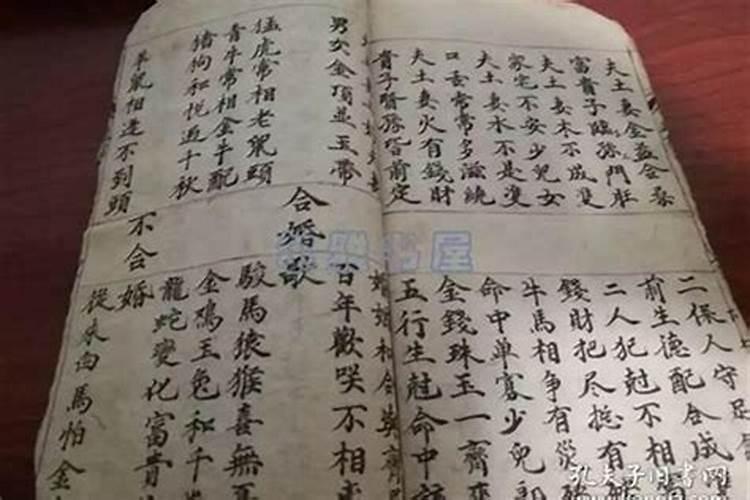 夫土妻金益合
富貴子臨孫門旺
夫土妻木不成雙
家宅不安少兒女
夫土妻水不是雙
口舌常常多滋繞
夫土妻火有錢財
貴子賢孫皆前定
二保人守足
前生德配合成
二人犯尅不相
錢財把尽挺有
牛馬相争有災
命中单寡少兒郎
金錢珠玉一齊來
五行生尅命中該
婚姻和合
男女金頂並玉帶
猛虎常相老鼠頭
青牛常相金牛配
猪狗和悦过千秋
羊鼠相逢不到頭
合婚歌
百年歡咲不相
駿馬猿猴喜無
金鸡玉兔和千
龍蛇變化富貴
不合婚
從来白馬怕金
孔夫子旧书网